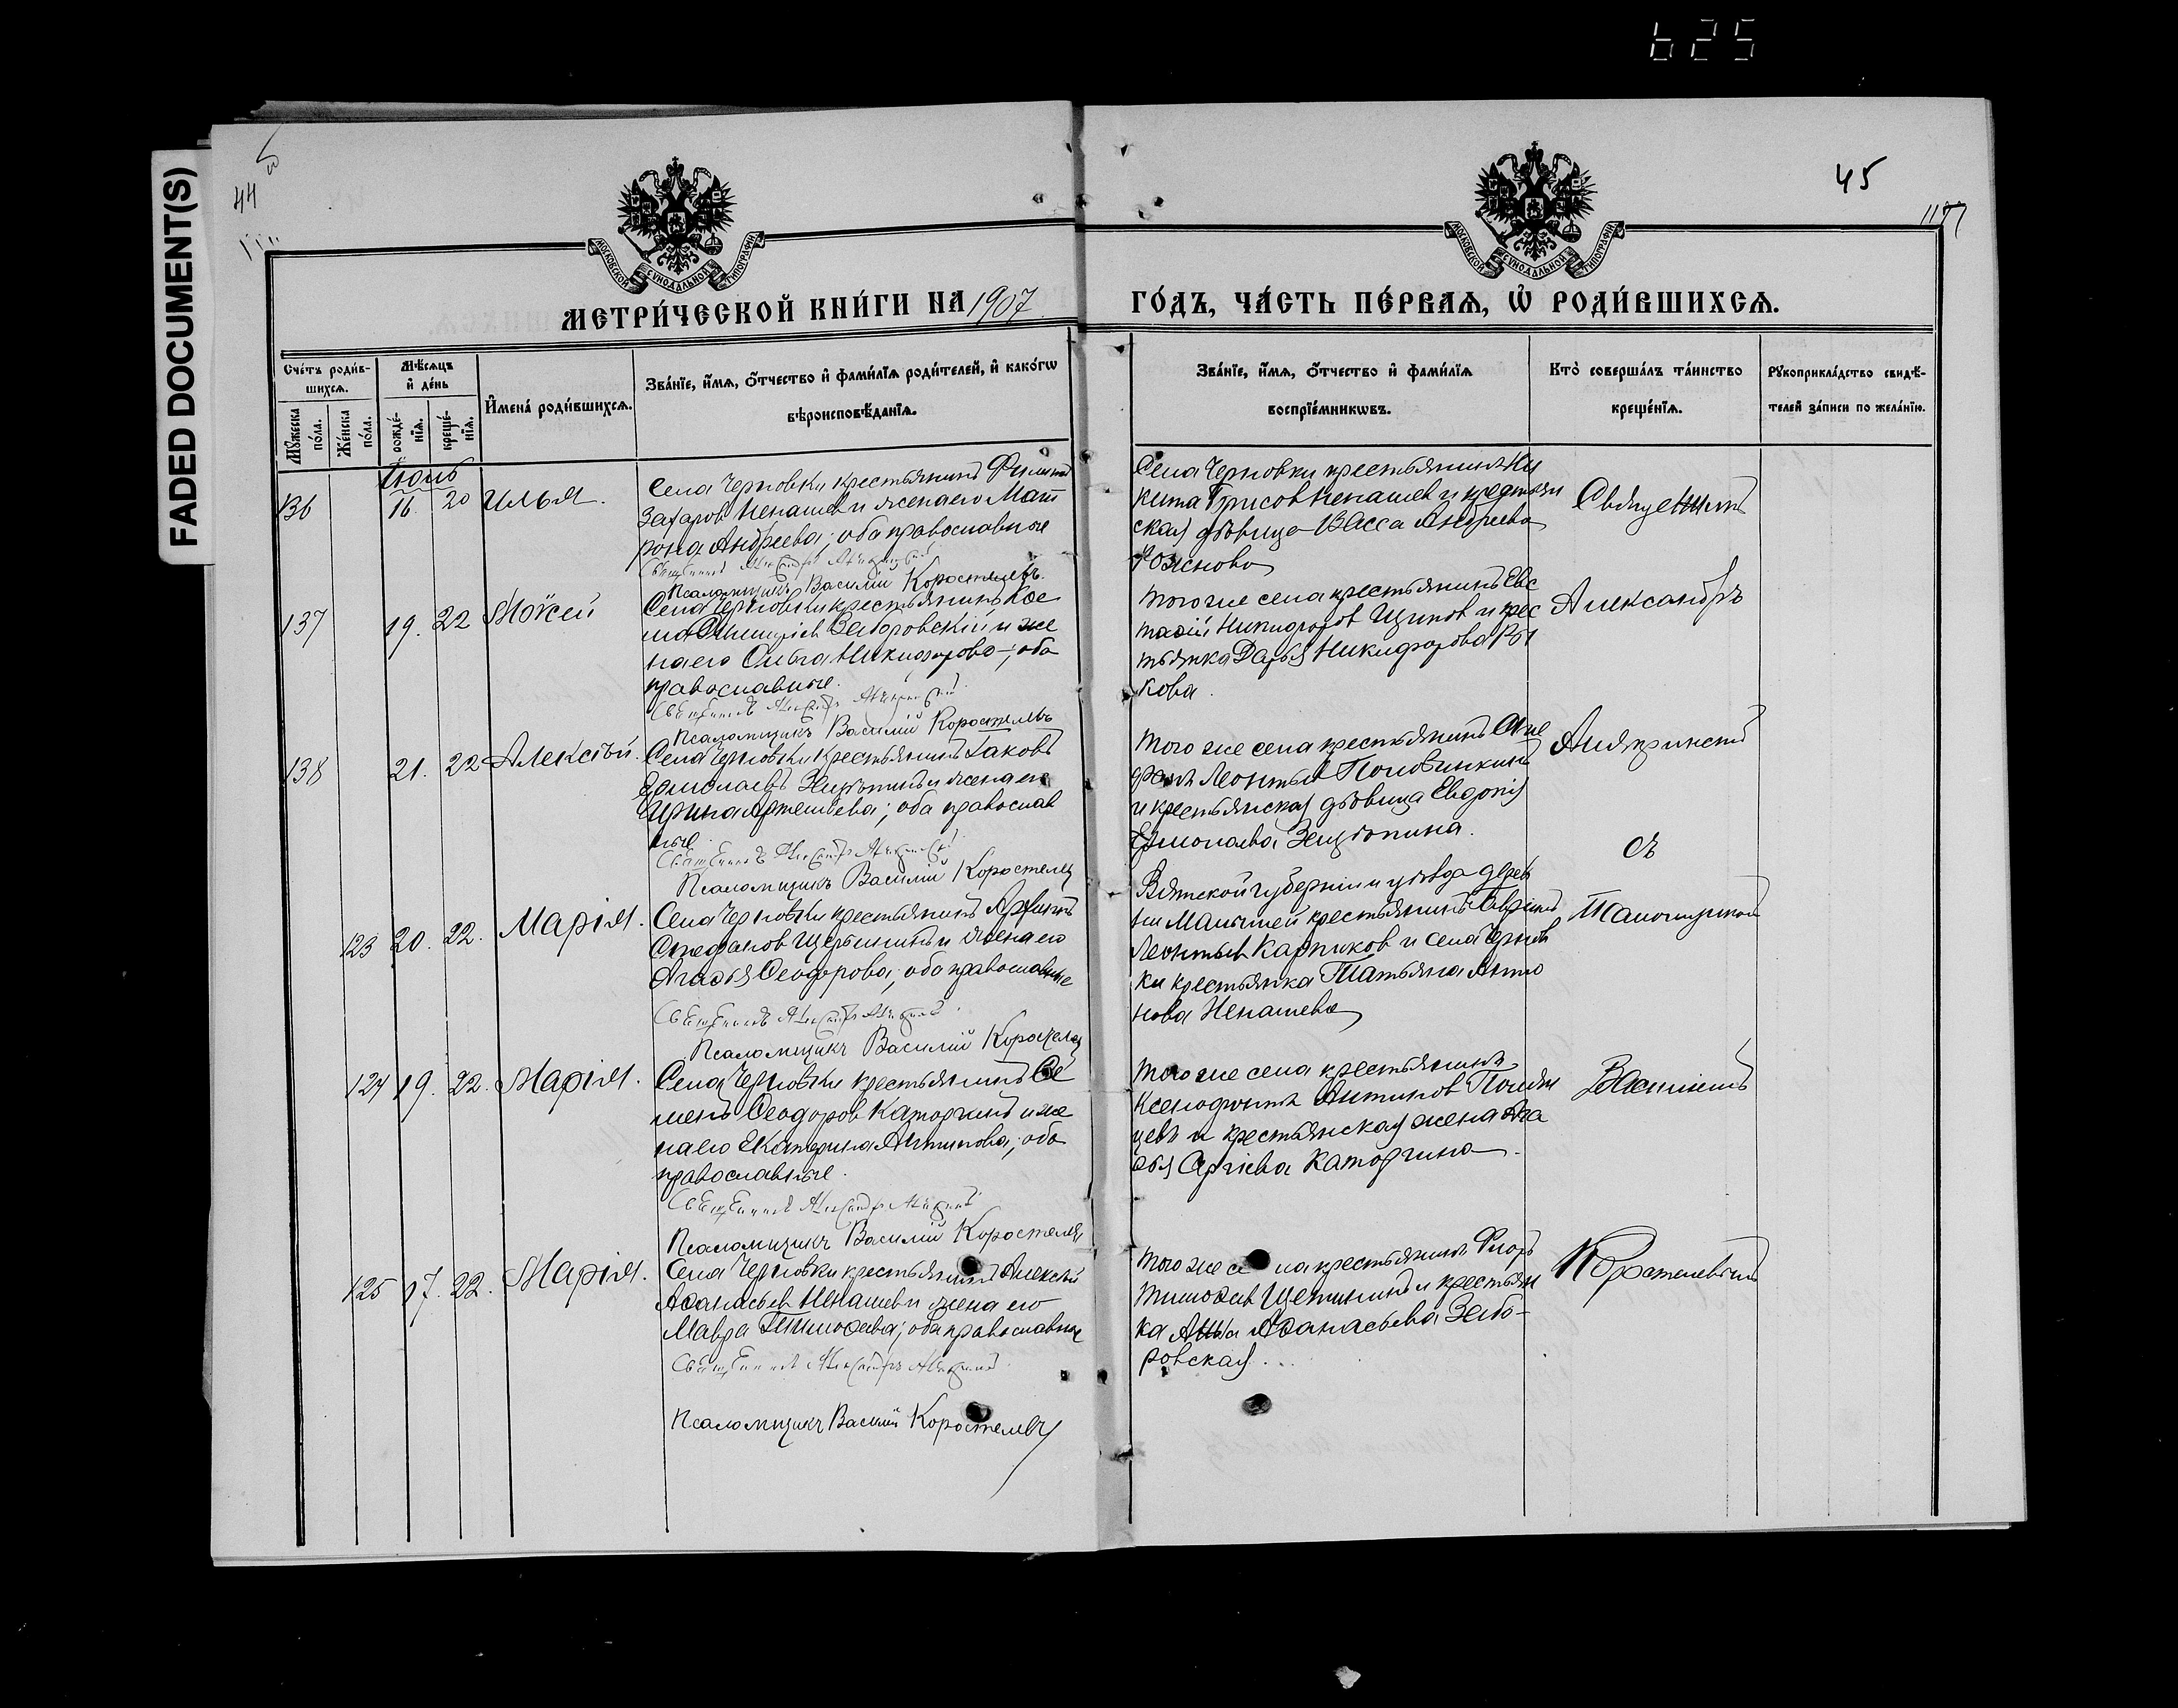 625
FADED DOCUMENT(S)
44
45
1177
МОСКОВСКОЙ СѴНОДАЛЬНОЙ ТИПОГРАФІИ
МОСКОВСКОЙ СѴНОДАЛЬНОЙ ТИПОГРАФІИ
МЕТРИ́ЧЕСКОЙ КНИ́ГИ НА 1907
ГО́ДЪ, ЧА́СТЬ ПЕ́РВАѦ, Ѡ҆ РОДИ́ВШИХСѦ.
Сче́тъ роди́в-
шихсѧ.
Мꙋ́жеска по́ла.
Же́нска по́ла.
Мѣ́сѧцъ
и҆ де́нь
рожде́-
нїѧ.
креще́-
нїѧ.
И҆мена́ роди́вшихсѧ.
Зва́нїе, и҆́мѧ, о҆́тчество и҆ фами́лїѧ роди́телей, и҆ како́гѡ
вѣроисповѣ́данїѧ.
Зва́нїе, и҆́мѧ, о҆́тчество и҆ фами́лїѧ
воспрїе́мникѡвъ.
Кто̀ соверша́лъ та́инство
креще́нїѧ.
Рꙋкоприкла́дство свидѣ́-
телей за́писи по жела́нїю.
Іюль
136 16. 20 Илья.
Села Черновки крестьянинъ Филиппъ
Захаров Ненашев и жена его Мат
рона Андреева; оба православные
Священникъ Александръ
Псаломщикъ Василій Коростелевъ
Села Черновки крестьянинъ Ни
кита Борисов Ненашев и крестьян
ская дѣвица Васса Андреева
Священникъ
137 19. 22 Моѵсей
Села Черновки крестьянинъ Кос
ма Димитріев Заборовскій и же
на его Ольга Никифорова; оба
православные.
Священникъ Александръ
Псаломщикъ Василій Коростелевъ
Того же села крестьянинъ Евс
тафій Никифоров Щипов и крес
тьянка Дарья Никифорова Ры
кова.
Александръ
138 21. 22 Алексѣй.
Села Черновки крестьянинъ Іаковъ
Ермолаевъ и жена его
Ирина Артемьева; оба православ
ные.
Священникъ Александръ
Псаломщикъ Василій Коростелев
Того же села крестьянинъ Сте
фанъ Леонтьев Половинкинъ
и крестьянская дѣвица Евдокія
Ермолаева
съ
123 20. 22. Марія.
Села Черновки крестьянинъ
Стефанов Щетининъ и жена его
Агафья Ѳеодорова; оба православные
Священникъ Александръ
Псаломщикъ Василій Коростелев
Вятской губерніи и уѣзда дерев
ни крестьянинъ
Леонтьев Карпиков и села Чернов
ки крестьянка Татьяна Анто
нова Ненашева
Псаломщикомъ
124 19. 22. Марія.
Села Черновки крестьянинъ Се
менъ Ѳеодоров Каторгинъ и же
на его Екатерина Антипова; оба
православные.
Священникъ Александръ
Псаломщикъ Василій Коростелев
Того же села крестьянинъ
Ксенофонтъ Антипов
и крестьянская жена Ага
ѳья Сергіева Каторгина.
Василіемъ
125 17. 22. Марія.
Села Черновки крестьянинъ Алексѣй
Аѳанасьев Ненашев и жена его
Мавра Тимоѳеева; оба православные
Священникъ Александръ
Псаломщикъ Василій Коростелевъ
Того же села крестьянинъ Флоръ
Тимоѳеев Щетининъ и крестьян
ка Анна Аѳанасьева Забо-
ровская.
Коростелевымъ